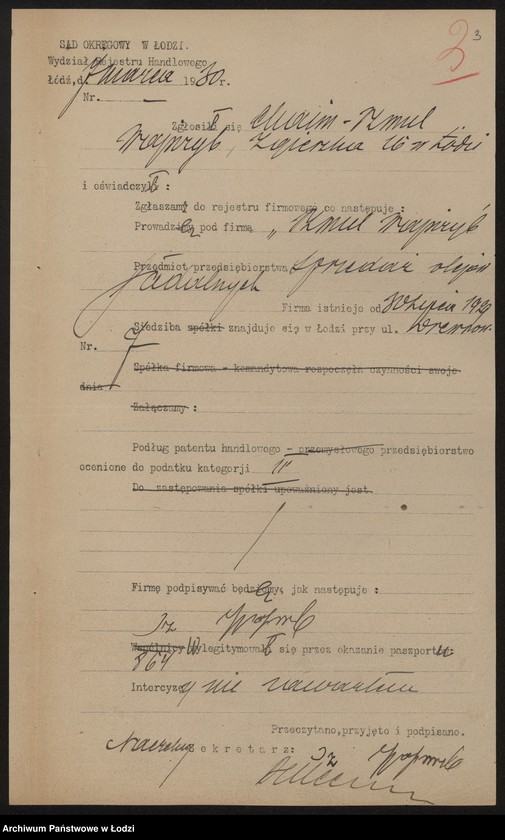 3
3
SĄD OKRĘGOWY W ŁODZI.
Wydział Rejestru Handlowego
Łódź, d. 7 marca 1930 r.
Nr. —
Zgłosił się Chaim-Szmul
Wajnryb, Zgierska 16 w Łodzi
i oświadczył:
Zgłaszamy do rejestru firmowego co następuje:
Prowadzę pod firmą „Szmul Wajnryb
Przedmiot przedsiębiorstwa sprzedaż olejów
jadalnych
Firma istnieje od 30 lipca 1929
Siedziba spółki znajduje się w Łodzi przy ul.
Nr. 7
Spółka firmowa - komandytowa rozpoczęła czynności swoje
dnia
Załączamy:
Podług patentu handlowego - przemysłowego przedsiębiorstwo
ocenione do podatku kategorji II
Do zastępowania spółki upoważniony jest.
Firmę podpisywać będę, jak następuje:
Sz
Wspólnicy Wylegitymował się przez okazanie paszportu
864
Intercyzy nie zawarłem
Przeczytano, przyjęto i podpisano.
Sekretarz: Sz